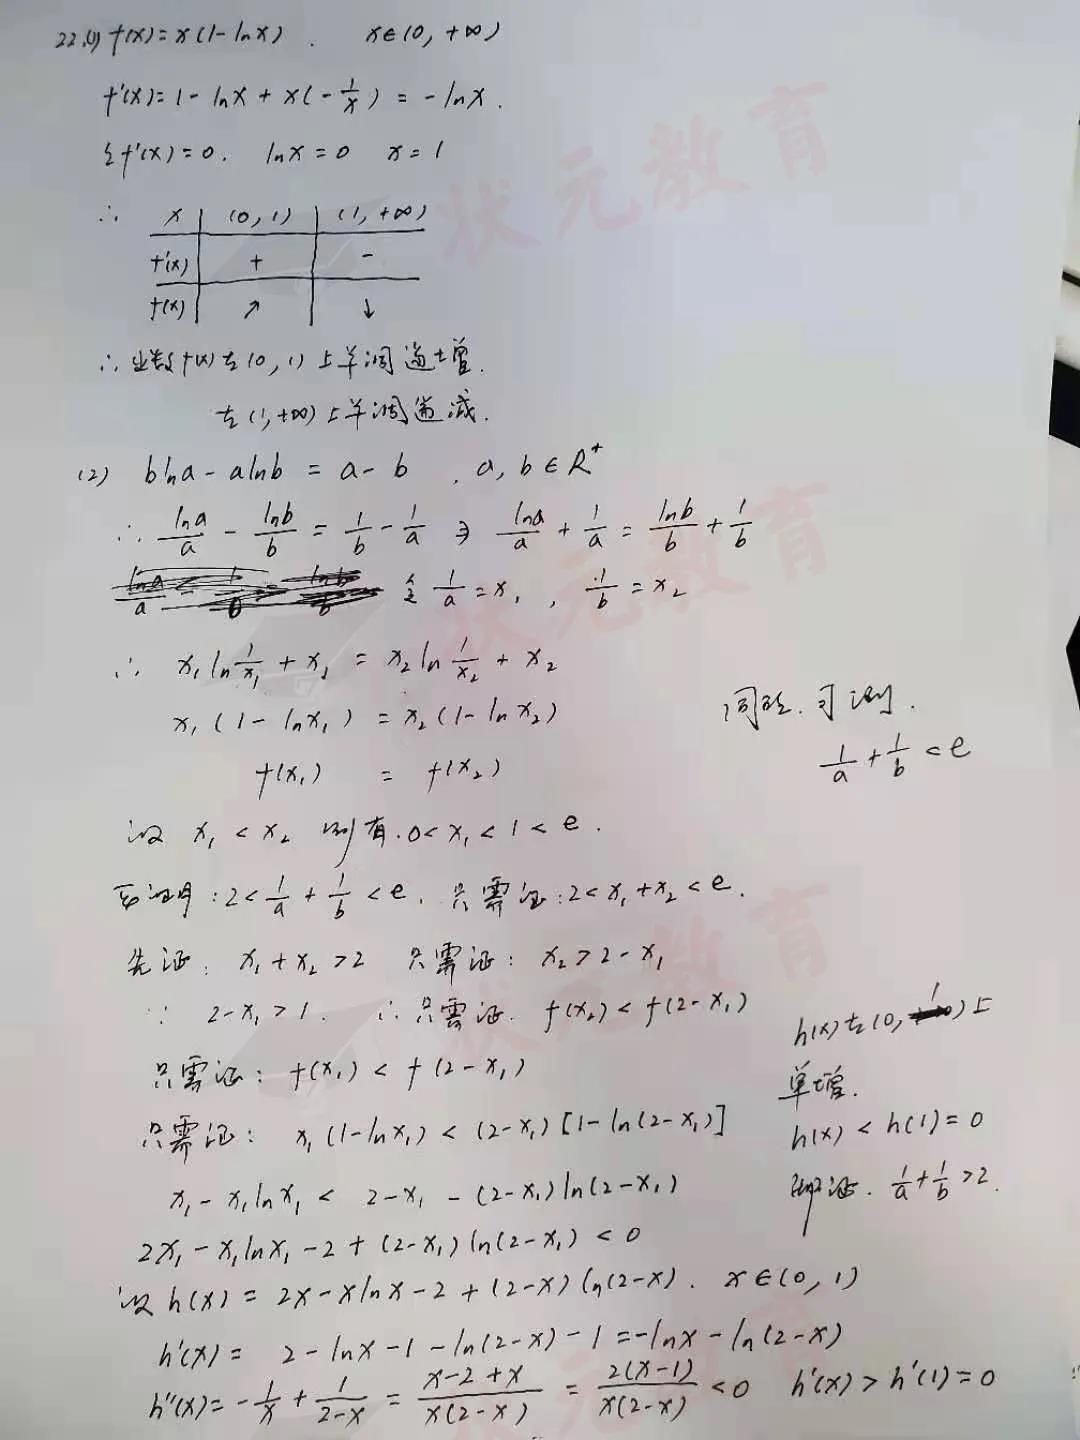 22.(1) f(x)=x(1-lnx). x∈(0,+∞)
f'(x)=1-lnx+x(-1/x)=-lnx.
令f'(x)=0. lnx=0 x=1
∴ x (0,1) (1,+∞)
f'(x) + -
f(x) ↗ ↓
∴函数f(x)在(0,1)上单调递增.
在(1,+∞)上单调递减.
(2) blna-alnb=a-b, a,b∈R⁺
∴ lna/a - lnb/b = 1/b - 1/a ⇒ lna/a + 1/a = lnb/b + 1/b
令 1/a=x₁, 1/b=x₂
∴ x₁ln1/x₁+x₁=x₂ln1/x₂+x₂
x₁(1-lnx₁)=x₂(1-lnx₂)
f(x₁)=f(x₂)
设 x₁<x₂ 则有.0<x₁<1<e.
要证明:2<1/a+1/b<e. 只需证:2<x₁+x₂<e.
先证: x₁+x₂>2 只需证: x₂>2-x₁
∵ 2-x₁>1. ∴只需证. f(x₂)<f(2-x₁)
只需证: f(x₁)<f(2-x₁)
只需证: x₁(1-lnx₁)<(2-x₁)[1-ln(2-x₁)]
x₁-x₁lnx₁<2-x₁-(2-x₁)ln(2-x₁)
2x₁-x₁lnx₁-2+(2-x₁)ln(2-x₁)<0
设h(x)=2x-xlnx-2+(2-x)ln(2-x). x∈(0,1)
h'(x)=2-lnx-1-ln(2-x)-1=-lnx-ln(2-x)
h''(x)=-1/x+1/(2-x)=(x-2+x)/(x(2-x))=2(x-1)/(x(2-x))<0 h'(x)>h'(1)=0
h(x)在(0,1)上
单增.
h(x)<h(1)=0
即证. 1/a+1/b>2.
同理.可测.
1/a+1/b<e
状元教育
状元教育
状元教育